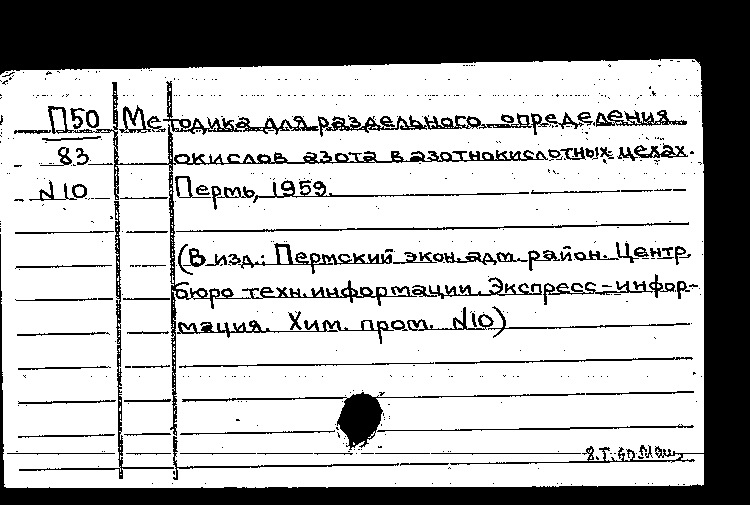 П50 Методика для раздельного определения
83 окислов азота в азотнокислотных цехах.
N10 Пермь, 1959.
(В изд.: Пермский экон. адм. район. Центр.
бюро техн. информации. Экспресс-инфор-
мация. Хим. пром. N10)